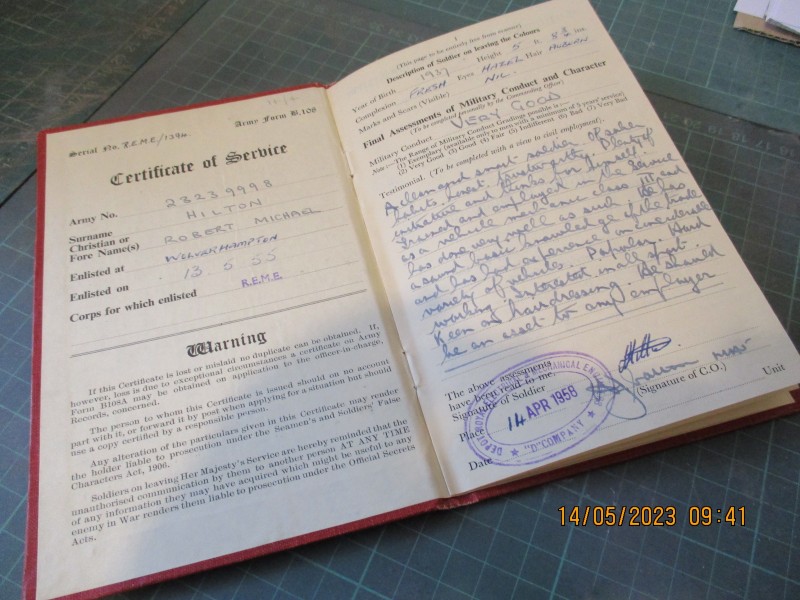 Army Form B.108
Serial No. R.E.M.E/1394
Certificate of Service
Army No. 23239998
Surname HILTON
Christian or
Fore Name(s) ROBERT MICHAEL
Enlisted at WOLVERHAMPTON
Enlisted on 13. 5 55
Corps for which enlisted R.E.M.E
Warning
If this Certificate is lost or mislaid no duplicate can be obtained. If,
however, loss is due to exceptional circumstances a certificate on Army
Form B108A may be obtained on application to the officer-in-charge,
Records, concerned.
The person to whom this Certificate is issued should on no account
part with it, or forward it by post when applying for a situation but should
use a copy certified by a responsible person.
Any alteration of the particulars given in this Certificate may render
the holder liable to prosecution under the Seamen's and Soldiers' False
Characters Act, 1906.
Soldiers on leaving Her Majesty's Service are hereby reminded that the
unauthorised communication by them to another person AT ANY TIME
of any information they may have acquired which might be useful to any
enemy in War renders them liable to prosecution under the Official Secrets
Acts.
1
(This page to be entirely free from erasure)
Description of Soldier on leaving the Colours
Year of Birth 1937 Height 5 ft. 8½ ins.
Complexion FRESH Eyes HAZEL Hair AUBURN
Marks and Scars (Visible) NIL.
Final Assessments of Military Conduct and Character
(To be completed personally by the Commanding Officer)
Military Conduct VERY GOOD
Note:—The Range of Military Conduct Gradings possible is:—
(1) Exemplary (available only to men with a minimum of 3 years' service)
(2) Very Good (3) Good (4) Fair (5) Indifferent (6) Bad (7) Very Bad
Testimonial. (To be completed with a view to civil employment).
A clean and smart soldier. Of sober
habits, honest, trustworthy. Plenty of
initiative and thinks for himself.
Trained and employed in the Service
as a vehicle mechanic class III and
has done very well as such. He has
a sound basic knowledge of the trade
and has had experience on considerable
variety of vehicle. Popular. Hard
working. Interested in all sport.
Keen on hairdressing. He should
be an asset to any employer
The above assessments
have been read to me.
Signature of Soldier
(Signature of C.O.)
Place
Unit
Date
MECHANICAL ENG
14 APR 1958
"D" COMPANY
14/05/2023 09:41